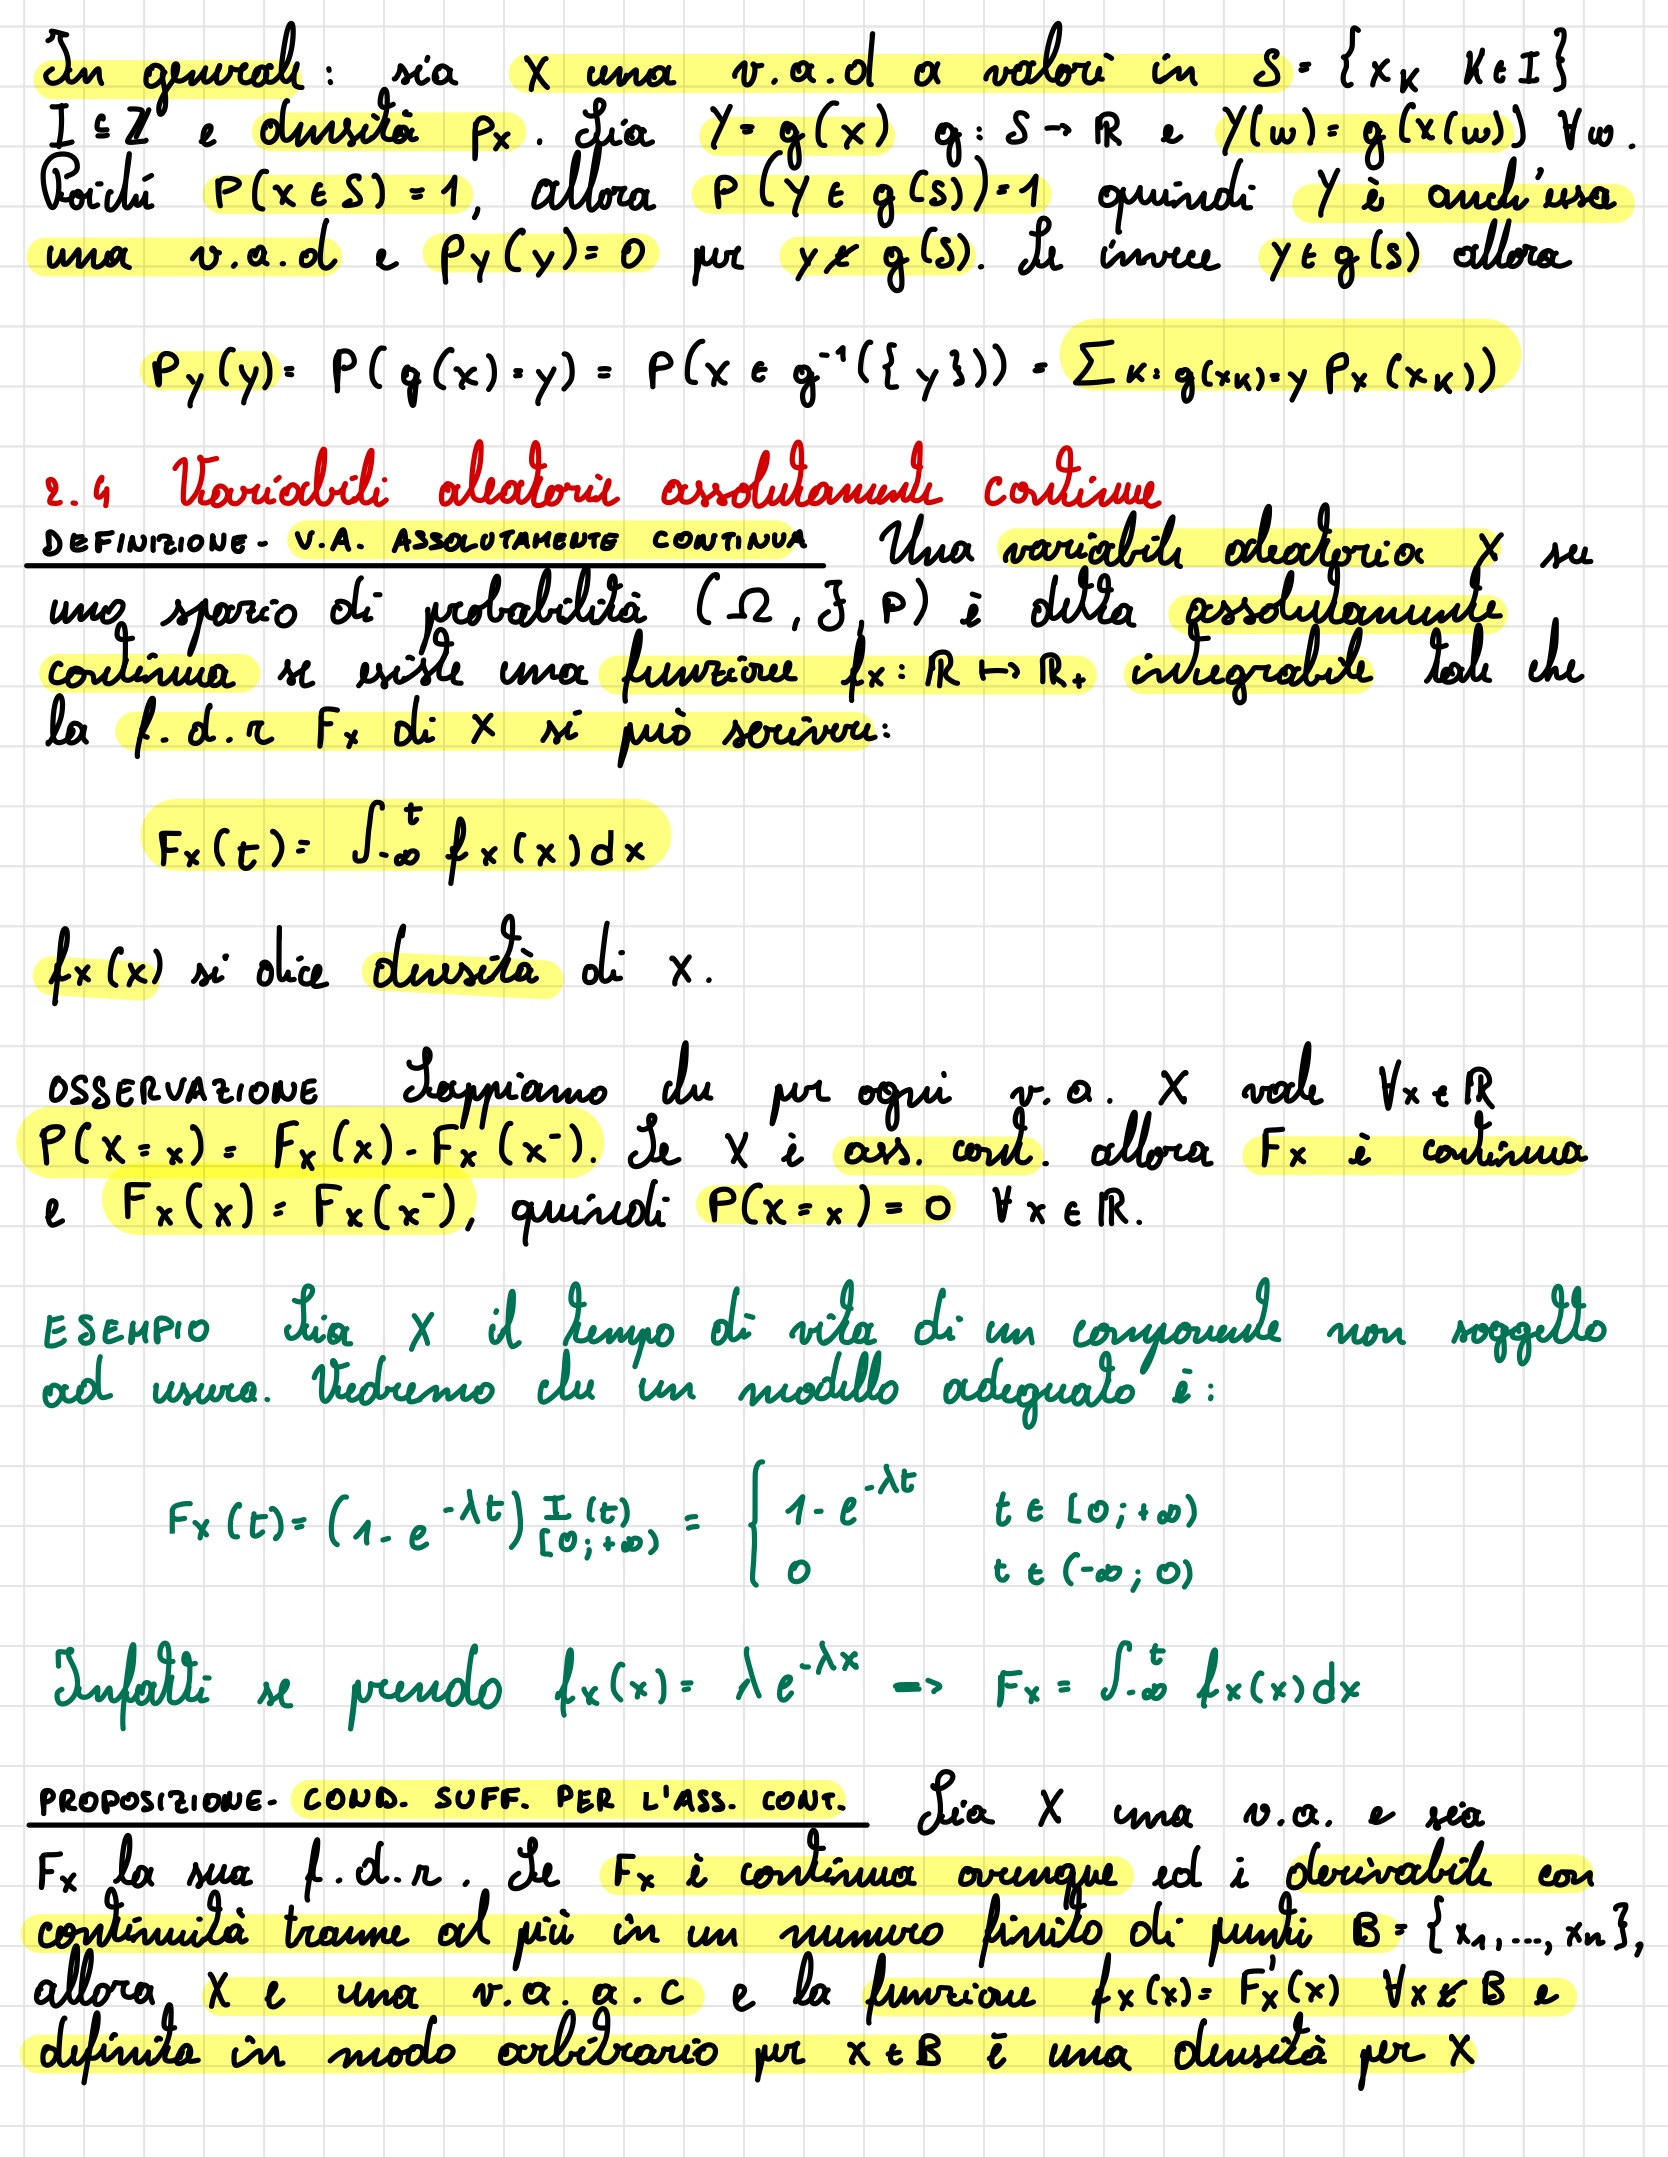 In generale: sia X una v.a.d a valori in S = {x_K K ∈ I}
I ⊆ Z e densità p_X. Sia Y = g(X) g: S → ℝ e Y(w) = g(X(w)) ∀w.
Poiché P(X ∈ S) = 1, allora P(Y ∈ g(S)) = 1 quindi Y è anch'essa
una v.a.d e p_Y(y) = 0 per y ∉ g(S). Se invece y ∈ g(S) allora
P_Y(y) = P(g(X) = y) = P(X ∈ g⁻¹({y})) = ∑_{K: g(x_K) = y} P_X(x_K))
2.4 Variabili aleatorie assolutamente continue
DEFINIZIONE - V.A. ASSOLUTAMENTE CONTINUA Una variabile aleatoria X su
uno spazio di probabilità (Ω, F, P) è detta assolutamente
continua se esiste una funzione f_X: ℝ ↦ ℝ₊ integrabile tale che
la f.d.r F_X di X si può scrivere:
F_X(t) = ∫_{-∞}^{t} f_X(x)dx
f_X(x) si dice densità di X.
OSSERVAZIONE Sappiamo che per ogni v.a. X vale ∀x ∈ ℝ
P(X = x) = F_X(x) - F_X(x⁻). Se X è ass. cont. allora F_X è continua
e F_X(x) = F_X(x⁻), quindi P(X = x) = 0 ∀x ∈ ℝ.
ESEMPIO Sia X il tempo di vita di un componente non soggetto
ad usura. Vedremo che un modello adeguato è:
F_X(t) = (1 - e^{-λt}) I_{[0; +∞)}(t) = { 1 - e^{-λt} t ∈ [0; +∞)
0 t ∈ (-∞; 0)
Infatti se prendo f_X(x) = λe^{-λx} => F_X = ∫_{-∞}^{t} f_X(x)dx
PROPOSIZIONE - COND. SUFF. PER L'ASS. CONT. Sia X una v.a. e sia
F_X la sua f.d.r. Se F_X è continua ovunque ed è derivabile con
continuità tranne al più in un numero finito di punti B = {x₁, ..., xₙ},
allora X e una v.a.a.c e la funzione f_X(x) = F_X'(x) ∀x ∉ B e
definita in modo arbitrario per x ∈ B è una densità per X